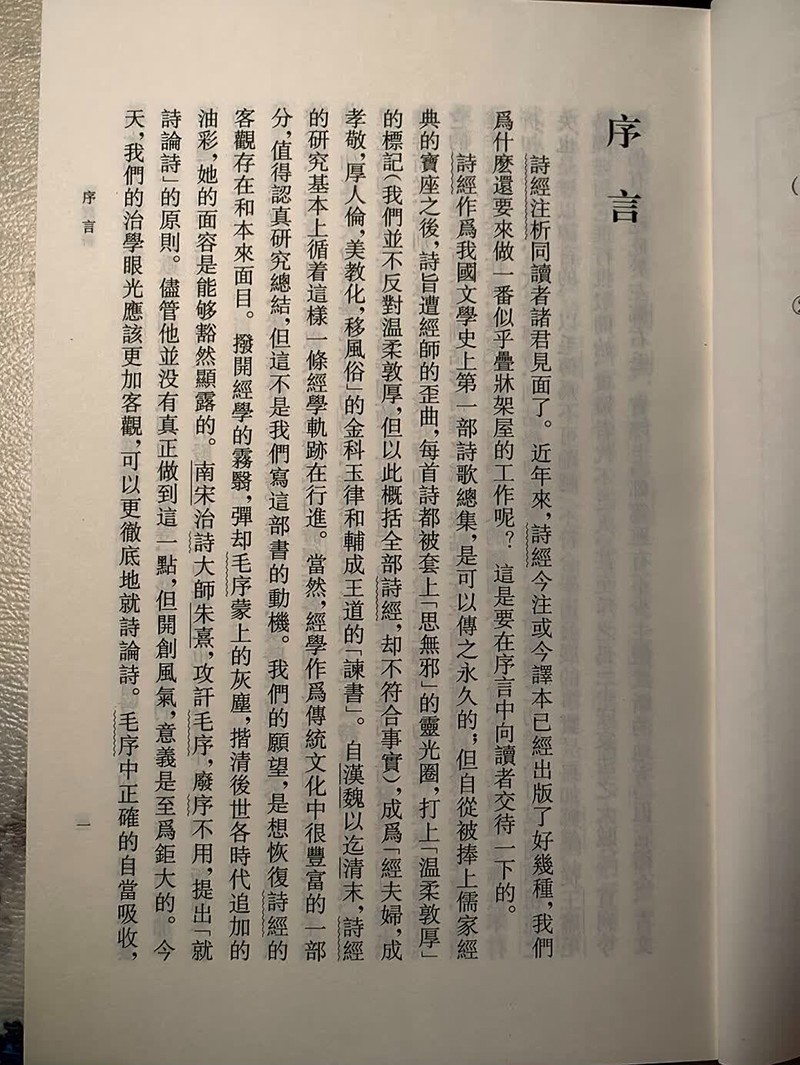 序言
詩經注析同讀者諸君見面了。近年來，詩經今注或今譯本已經出版了好幾種，我們
爲什麽還要來做一番似乎疊牀架屋的工作呢？這是要在序言中向讀者交待一下的。
詩經作爲我國文學史上第一部詩歌總集，是可以傳之永久的，但自從被捧上儒家經
典的寶座之後，詩旨遭經師的歪曲，每首詩都被套上「思無邪」的靈光圈，打上「温柔敦厚」
的標記（我們並不反對温柔敦厚，但以此概括全部詩經，却不符合事實），成爲「經夫婦，成
孝敬，厚人倫，美教化，移風俗」的金科玉律和輔成王道的「諫書」。自漢魏以迄清末，詩經
的研究基本上循着這樣一條經學軌跡在行進。當然，經學作爲傳統文化中很豐富的一部
分，值得認真研究總結，但這不是我們寫這部書的動機。我們的願望，是想恢復詩經的
客觀存在和本來面目。撥開經學的霧翳，彈却毛序蒙上的灰塵，揩清後世各時代追加的
油彩，她的面容是能够豁然顯露的。南宋治詩大師朱熹，攻訐毛序，廢序不用，提出「就
詩論詩」的原則。儘管他並没有真正做到這一點，但開創風氣，意義是至爲鉅大的。今
天，我們的治學眼光應該更加客觀，可以更徹底地就詩論詩。毛序中正確的自當吸收，
序言
一